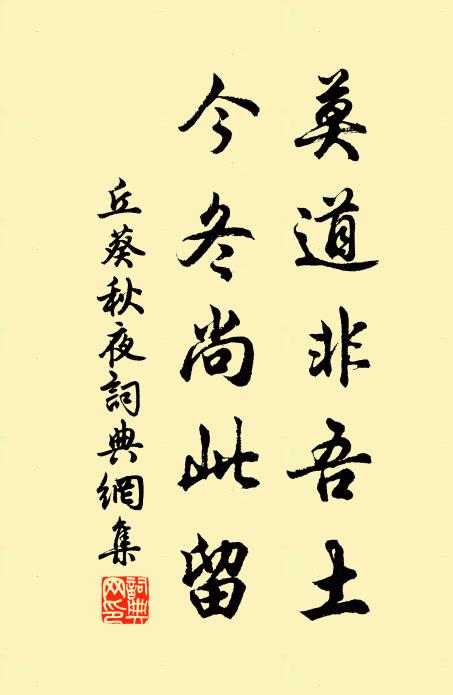 莫道非吾土
今冬尚此留
丘葵秋夜詞典網集
詞典网印